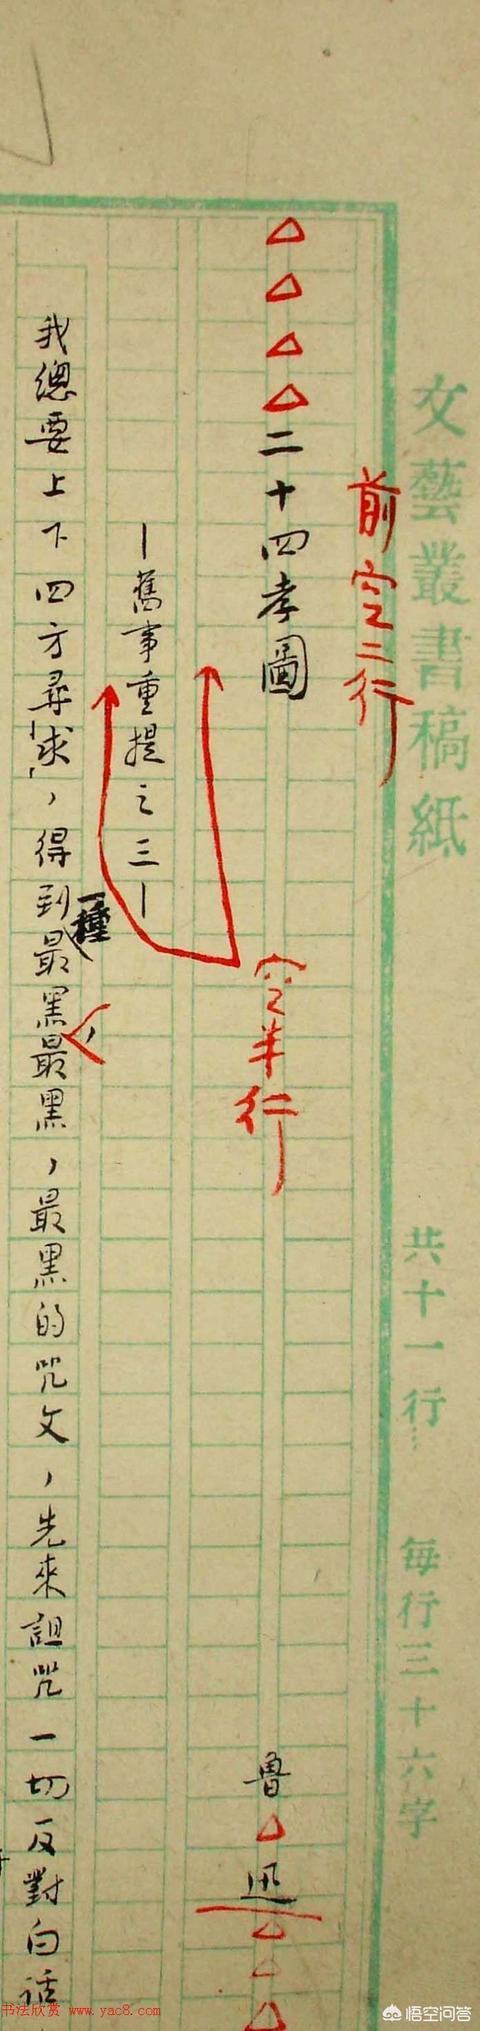 文藝叢書稿紙
共十一行⋯ 每行三十六字
前空二行
△△△△二十四孝圖
魯△迅△△△
空半行
｜舊事重提之三｜
我總要上下四方尋求，得到一種最黑，最黑，最黑的咒文，先來詛咒一切反對白話
书法欣赏 www.yac8.com
悟空问答